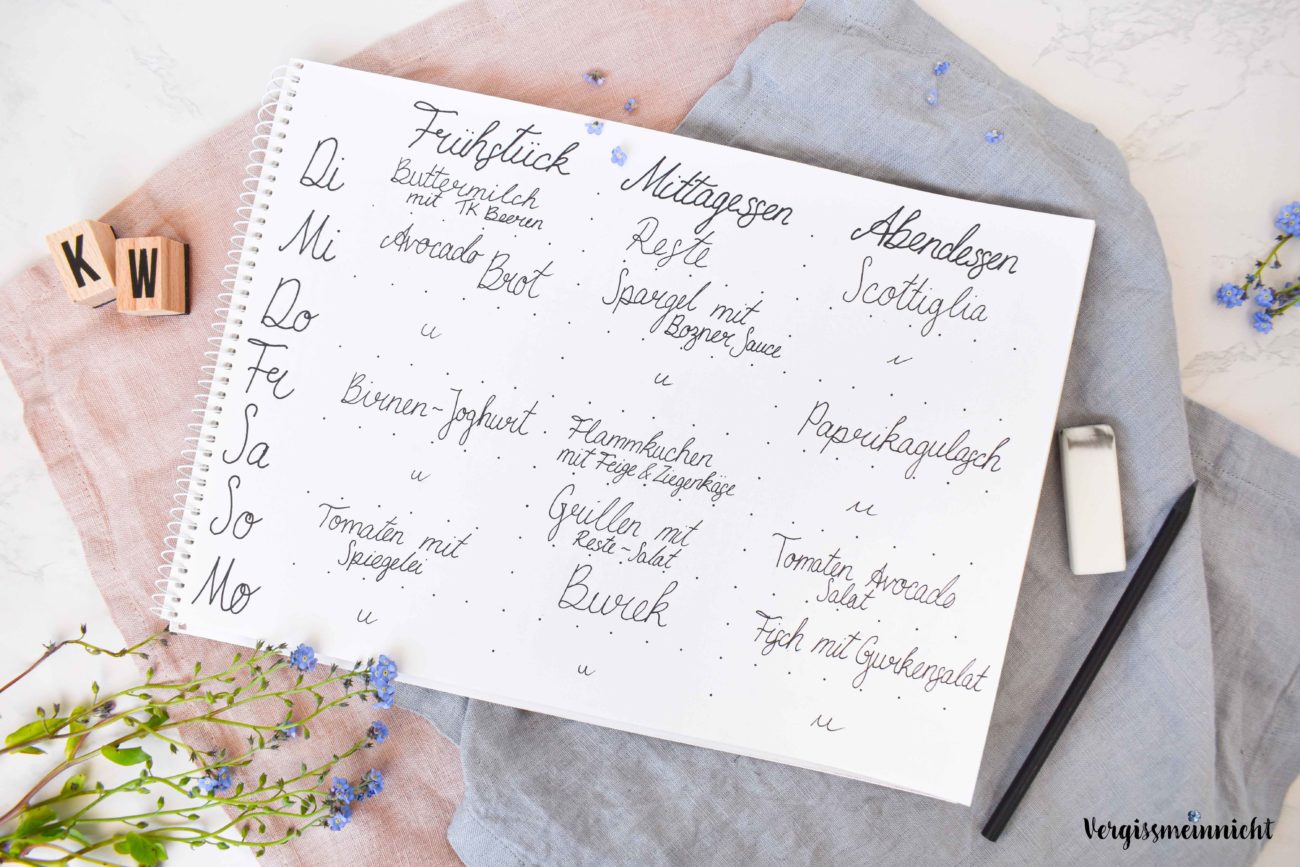 K W
Frühstück Mittagessen Abendessen
Di Buttermilch mit TK Beeren Reste Scottiglia
Mi Avocado Brot Spargel mit Bozner Sauce "
Do " " Paprikagulasch
Fr Birnen-Joghurt Flammkuchen mit Feige & Ziegenkäse "
Sa " Grillen mit Reste-Salat Tomaten Avocado Salat
So Tomaten mit Spiegelei Burek Fisch mit Gurkensalat
Mo " " "
Vergissmeinnicht